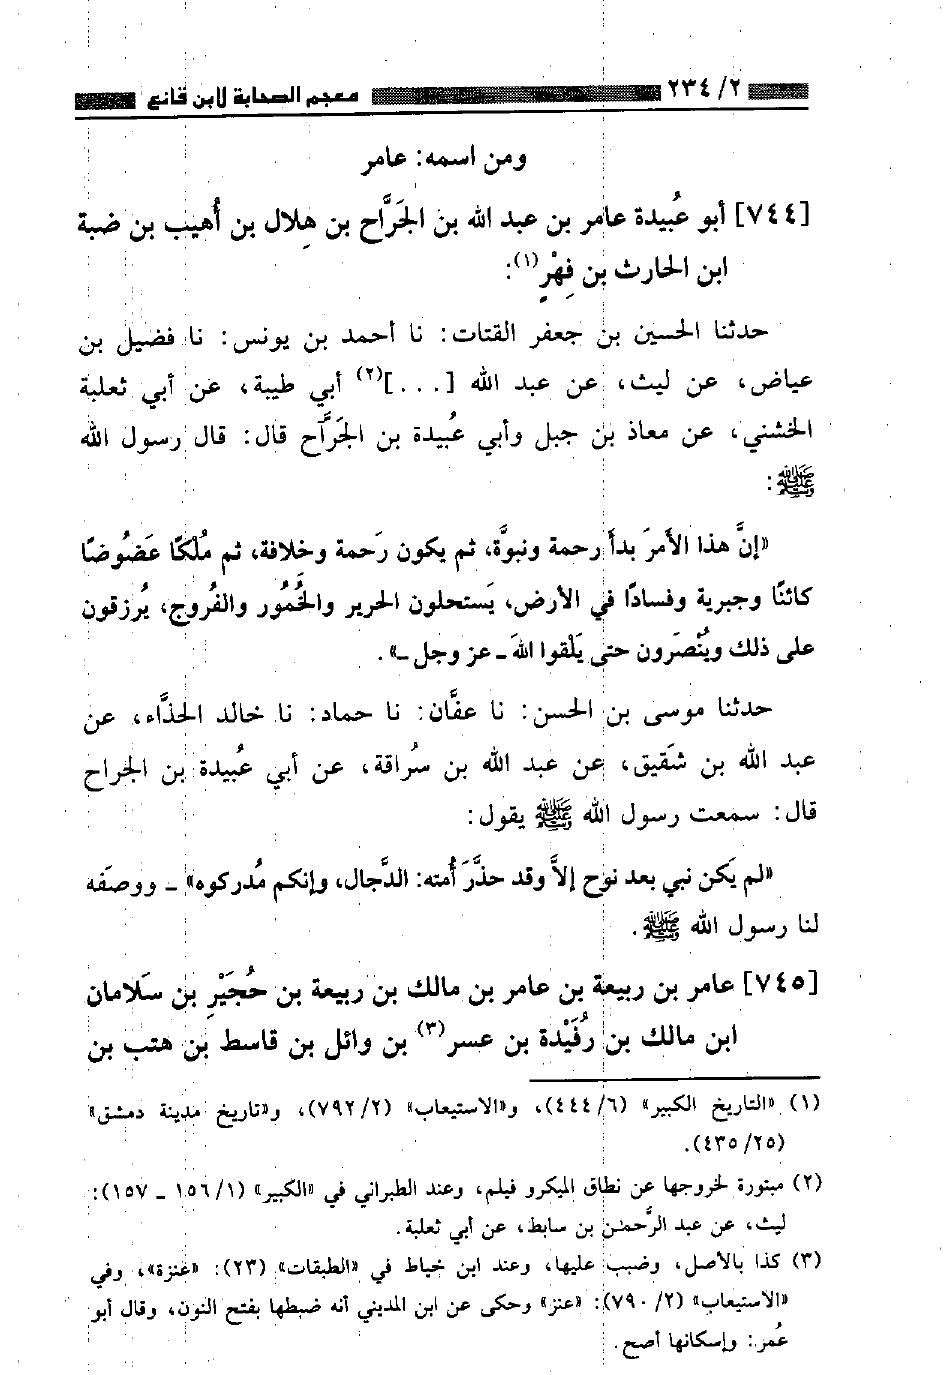 ٢/ ٢٣٤ معجم الصحابة لابن قانع
ومن اسمه: عامر
[٧٤٤] أبو عُبيدة عامر بن عبد الله بن الجَرَّاح بن هِلال بن أُهيب بن ضبة
ابن الحارث بن فِهْرٍ(١):
حدثنا الحسين بن جعفر القتات: نا أحمد بن يونس: نا فضيل بن
عياض، عن ليث، عن عبد الله [...](٢) أبي طيبة، عن أبي ثعلبة
الخشني، عن معاذ بن جبل وأبي عُبيدة بن الجَرَّاح قال: قال رسول الله
ﷺ:
«إنَّ هذا الأمرَ بدأ رحمة ونبوَّة، ثم يكون رَحمة وخلافة، ثم مُلكًا عَضُوضًا
كائنًا وجبرية وفسادًا في الأرض، يَستحلون الحرير والخُمُور والفُروج، يُرزقون
على ذلك ويُنْصَرون حتى يَلْقوا اللهَ ـ عز وجل ـ».
حدثنا موسى بن الحسن: نا عفَّان: نا حماد: نا خالد الحذَّاء، عن
عبد الله بن شَقيق، عن عبد الله بن سُراقة، عن أبي عُبيدة بن الجراح
قال: سمعت رسول الله ﷺ يقول:
«لم يَكن نبي بعد نوح إلاَّ وقد حذَّرَ أُمته: الدَّجال، وإنكم مُدركوه» ـ ووصَفه
لنا رسول الله ﷺ.
[٧٤٥] عامر بن ربيعة بن عامر بن مالك بن ربيعة بن حُجَيْرِ بن سَلامان
ابن مالك بن رُفَيْدة بن عسر(٣) بن وائل بن قاسط بن هتب بن
(١) «التاريخ الكبير» (٦/ ٤٤٤)، و«الاستيعاب» (٢/ ٧٩٢)، و«تاريخ مدينة دمشق»
(٢٥/ ٤٣٥).
(٢) مبتورة لخروجها عن نطاق الميكرو فيلم، وعند الطبراني في «الكبير» (١/ ١٥٦ ـ ١٥٧):
ليث، عن عبد الرَّحمٰن بن سابط، عن أبي ثعلبة.
(٣) كذا بالأصل، وضبب عليها، وعند ابن خياط في «الطبقات» (٢٣): «عنزة»، وفي
«الاستيعاب» (٢/ ٧٩٠): «عنز» وحكى عن ابن المديني أنه ضبطها بفتح النون، وقال أبو
عُمر: وإسكانها أصح.